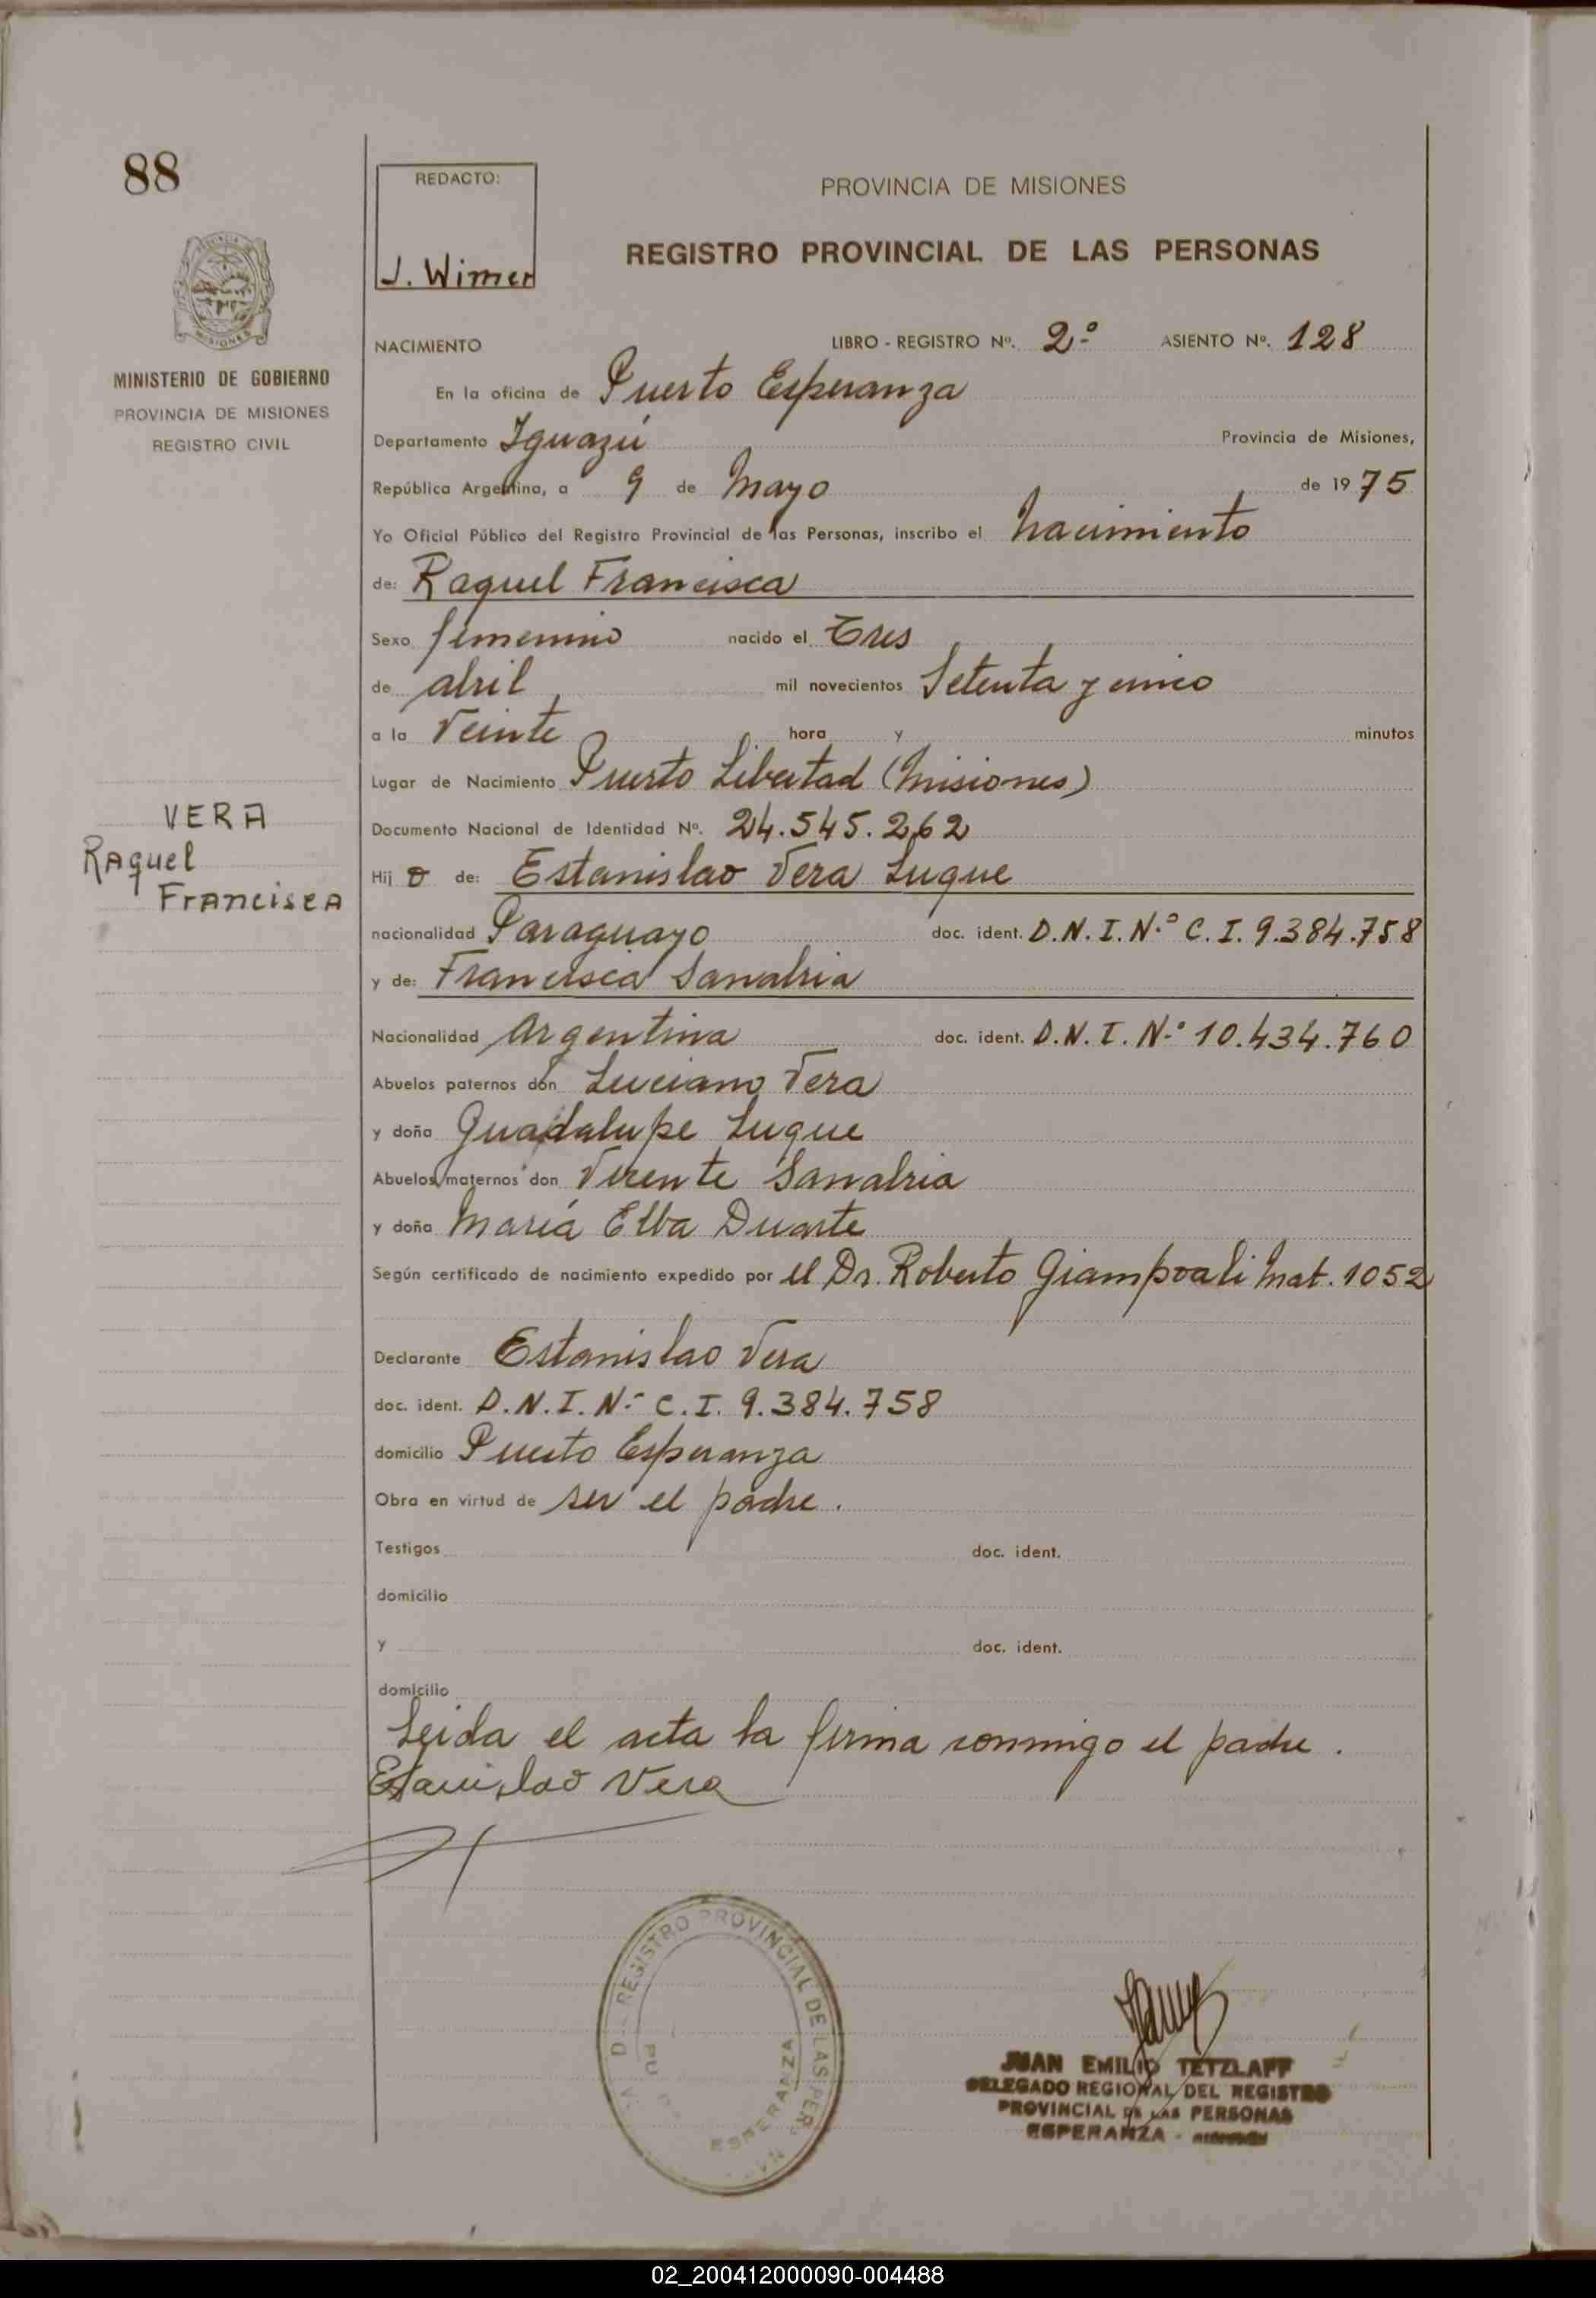 88
REDACTO:
J. Wimer
PROVINCIA DE MISIONES
REGISTRO PROVINCIAL DE LAS PERSONAS
MISIONES
MINISTERIO DE GOBIERNO
PROVINCIA DE MISIONES
REGISTRO CIVIL
NACIMIENTO LIBRO - REGISTRO Nº. 2º ASIENTO Nº. 128
En la oficina de Puerto Esperanza
Departamento Iguazú Provincia de Misiones,
República Argentina, a 9 de Mayo de 19 75
Yo Oficial Público del Registro Provincial de las Personas, inscribo el nacimiento
de: Raquel Francisca
Sexo femenino nacido el Tres
de abril, mil novecientos Setenta y cinco
a la Veinte hora y minutos
Lugar de Nacimiento Puerto Libertad (Misiones)
Documento Nacional de Identidad Nº. 24.545.262
VERA
Raquel
Francisca
Hij o de: Estanislao Vera Luque
nacionalidad Paraguayo doc. ident. D.N.I.N.º C.I. 9.384.758
y de: Francisca Sanabria
Nacionalidad Argentina doc. ident. D.N.I. N.º 10.434.760
Abuelos paternos don Luciano Vera
y doña Guadalupe Luque
Abuelos maternos don Vicente Sanabria
y doña María Elba Duarte
Según certificado de nacimiento expedido por el Dr. Roberto Giampoali Mat. 1052
Declarante Estanislao Vera
doc. ident. D.N.I. N.- C.I. 9.384.758
domicilio Puerto Esperanza
Obra en virtud de ser el padre.
Testigos doc. ident.
domicilio
y doc. ident.
domicilio
Leida el acta la firma conmigo el padre.
Estanislao Vera
REGISTRO PROVINCIAL DE LAS PER
ESPERANZA
JUAN EMILIO TETZLAFF
DELEGADO REGIONAL DEL REGISTRO
PROVINCIAL DE LAS PERSONAS
ESPERANZA -
02_200412000090-004488